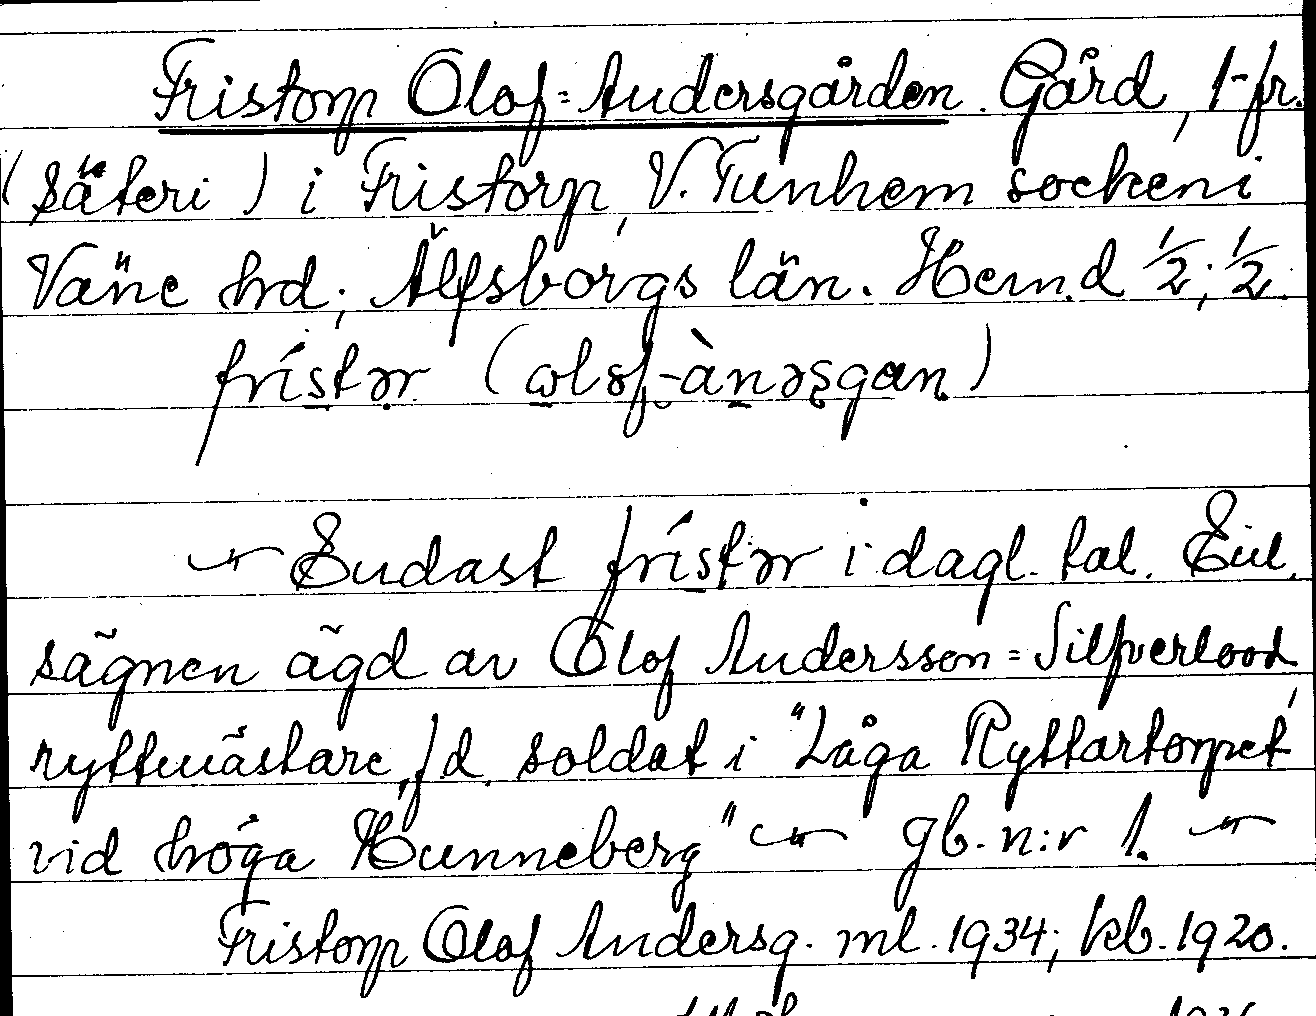 Fristorp Olof=Andersgården. Gård, 1-fr.
(säteri) i Fristorp, V. Tunhem socken i
Väne hrd; Älfsborgs län. Hem.d 1/2; 1/2.
frístər (ɷlɔf-ànəʂgan)
Endast frístər i dagl. tal. Enl.
sägnen ägd av Olof Andersson=Silfverlood,
ryttmästare, f.d. soldat i "Låga Ryttartorpet
vid höga Hunneberg" gb. n:r 1.
Fristorp Olof Andersg. ml. 1934; kb. 1920.